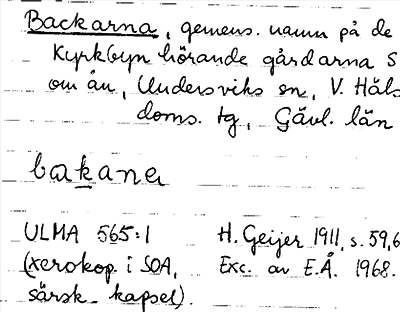 Backarna, gemens. namn på de
Kyrkbyn hörande gårdarna S
om ån, Undersviks sn, V. Häls
doms. tg, Gävl. län
bakanα
ULMA 565:1 H. Geijer 1911, s. 59,6
(xerokop. i SOA, Exc. av E.Å. 1968.
särsk. kapsel).